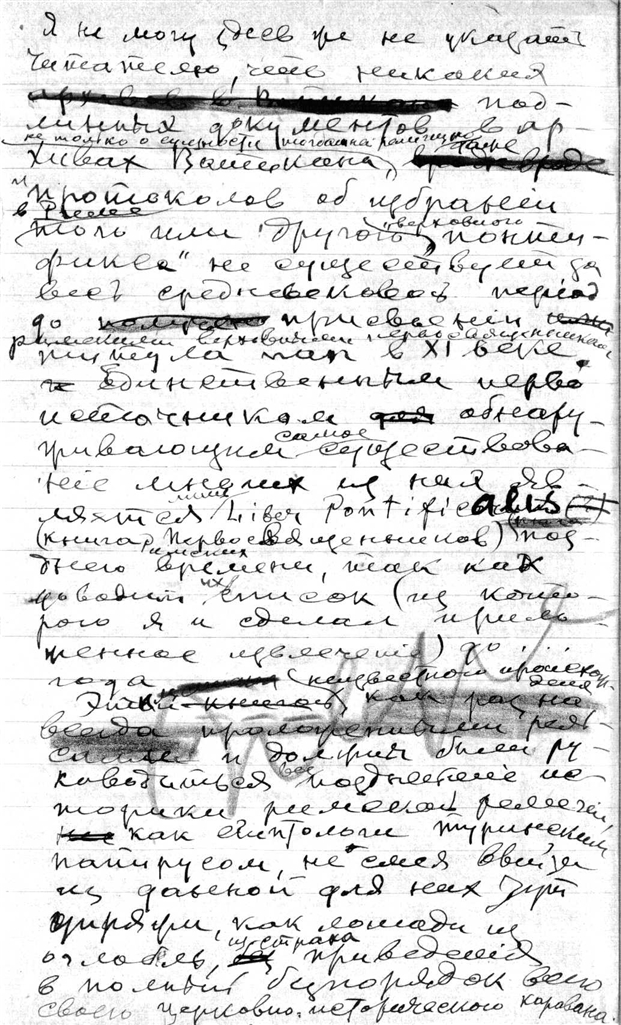 Я не могу здесь же не указать
читателю, что никакия
под-
линных документов в ар-
не только о сущности
хивах Ватикана, даже
протоколов об избрании
в Риме
того или другого „верховного понти-
фикса“ не существует за
весь средневековой период
до присвоения
римскими верховными первосвященниками
титула пап в XI веке.
Единственным перво
источником обнару-
живающим самое существова-
ние многих из них яв-
ляется лишь Liber Pontificalis
(книга Первосвященников) позд-
него времени, так как
доводит их список (из кото-
рого я и сделал прило-
женное извлечение) до ....
года (неизвестного происхож-
дения
Этими как раз на
всегда проложенными рель-
сами и должны были ру-
ководиться все позднейшие ис-
торики римской религии,
как египтологи туринским
папирусом, не смея выйти
из данной для них
, как лошади из
оглобль, из страха приведения
в полный беспорядок всего
своего церковно-исторического каравана.